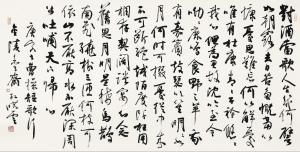 對酒當歌人生幾何譬
如朝露去日苦多慨當以
慷憂思難忘何以解憂
唯有杜康青青子衿悠悠
我心但為君故沈吟至今
呦呦鹿鳴食野之苹我
有嘉賓鼓瑟吹笙明明如
月何時可掇憂從中來
不可斷絕越陌度阡枉用
相存契闊談讌心念
舊恩月明星稀烏鵲
南飛繞樹三匝何枝可
依山不厭高水不厭深周
公吐哺天下歸心
短歌行
金陵 孫曉雲